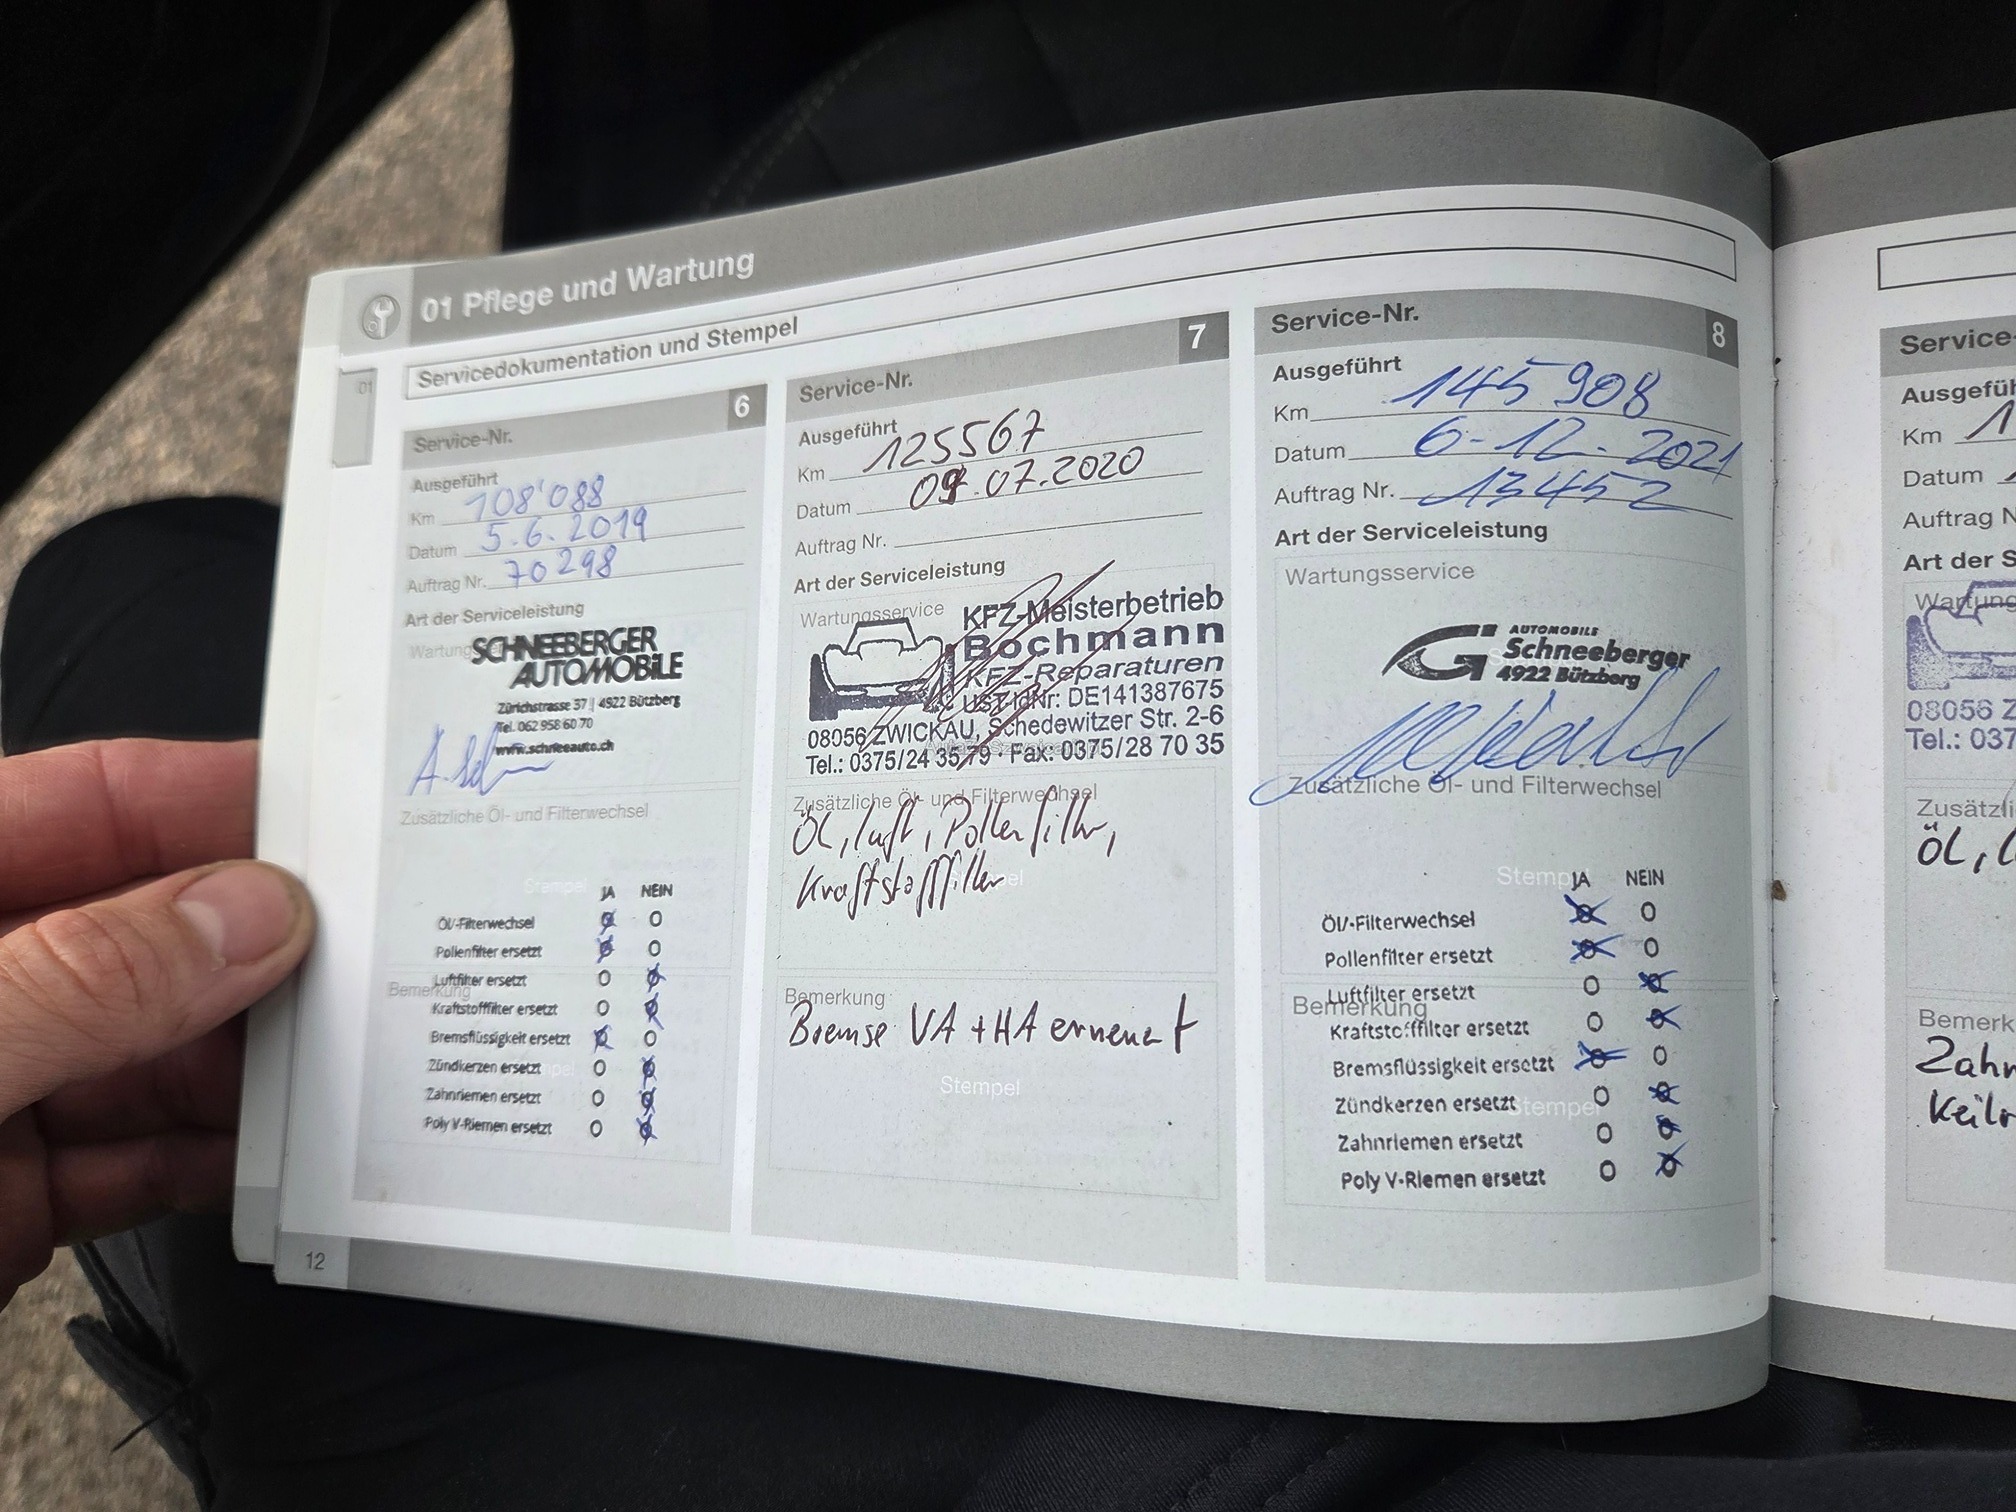 01 Pflege und Wartung
01
Servicedokumentation und Stempel
Service-Nr. 6
Ausgeführt
Km 108'088
Datum 5.6.2019
Auftrag Nr. 70298
Art der Serviceleistung
SCHNEEBERGER
AUTOMOBILE
Zürichstrasse 37 | 4922 Bützberg
Tel. 062 958 60 70
www.schneeauto.ch
Zusätzliche Öl- und Filterwechsel
Stempel
JA NEIN
Öl/-Filterwechsel
Pollenfilter ersetzt
Luftfilter ersetzt
Bemerkung
Kraftstofffilter ersetzt
Bremsflüssigkeit ersetzt
Zündkerzen ersetzt
Zahnriemen ersetzt
Poly V-Riemen ersetzt
12
Service-Nr. 7
Ausgeführt
Km 125567
Datum .07.2020
Auftrag Nr.
Art der Serviceleistung
Wartungsservice
KFZ-Meisterbetrieb
Bochmann
KFZ-Reparaturen
UST-IdNr: DE141387675
08056 ZWICKAU, Schedewitzer Str. 2-6
Tel.: 0375/24 35 79 · Fax: 0375/28 70 35
Zusätzliche Öl- und Filterwechsel
Öl, luft, Pollenfilter,
Kraftstofffilter
Bemerkung
Bremse VA + HA erneuert
Stempel
Service-Nr. 8
Ausgeführt
Km 145 908
Datum 6-12-2021
Auftrag Nr. 13452
Art der Serviceleistung
Wartungsservice
AUTOMOBILE
Schneeberger
4922 Bützberg
Zusätzliche Öl- und Filterwechsel
Stempel
JA NEIN
Öl/-Filterwechsel
Pollenfilter ersetzt
Luftfilter ersetzt
Bemerkung
Kraftstofffilter ersetzt
Bremsflüssigkeit ersetzt
Zündkerzen ersetzt
Stempel
Zahnriemen ersetzt
Poly V-Riemen ersetzt
Service-
Ausgefüh
Km 1
Datum
Auftrag N
Art der S
Wartung
08056 Z
Tel.: 037
Zusätzli
ÖL, l
Bemerk
Zahn
Keilr